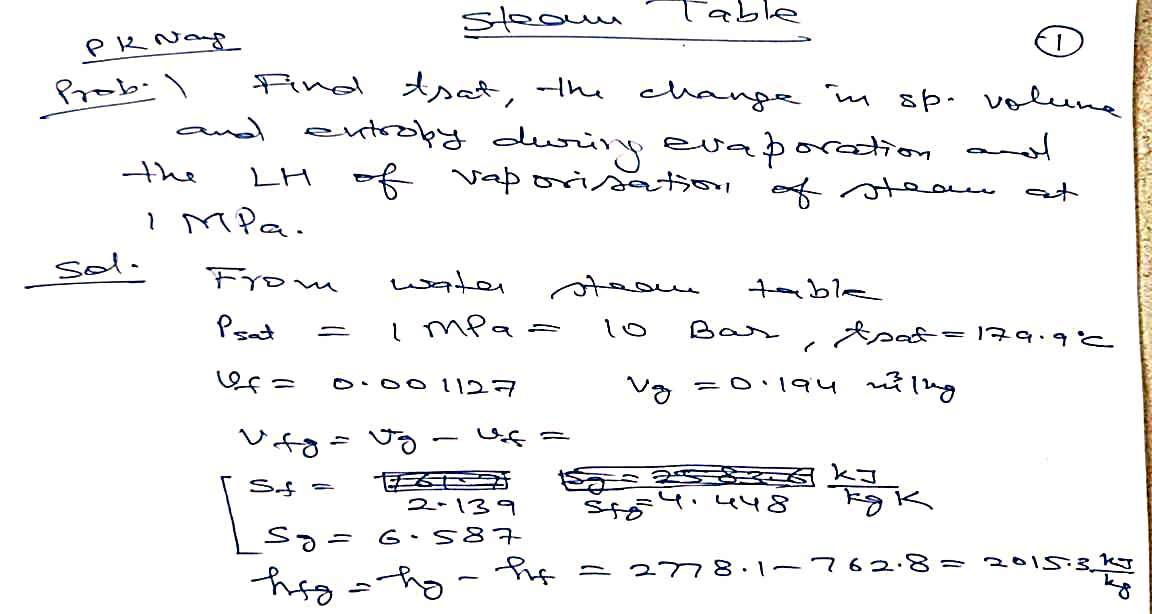 Steam Table
PK Nag
①
Prob. 1 Find tsat, the change in sp. volume
and entropy during evaporation and
the LH of vaporisation of steam at
1 MPa.
Sol. From water steam table
Psat = 1 MPa = 10 Bar, tsat = 179.9°C
vf = 0.001127 vg = 0.194 m³/kg
vfg = vg - vf =
Sf = 2.139 Sfg = 4.448 kJ/kg K
Sg = 6.587
hfg = hg - hf = 2778.1 - 762.8 = 2015.3 kJ/kg